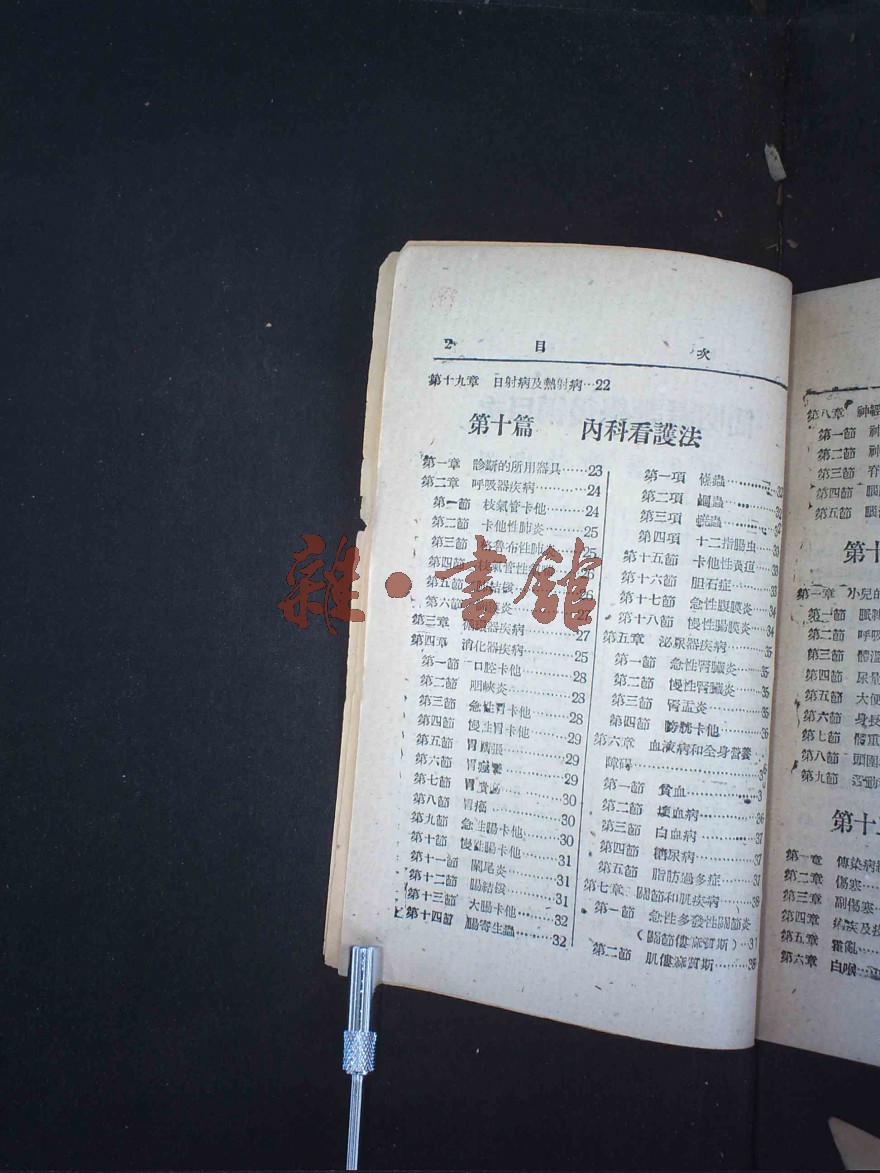 2 目 次
第十九章 日射病及熱射病…22
第十篇 內科看護法
第一章 診斷的所用器具……23
第二章 呼吸器疾病…………24
第一節 枝氣管卡他…………24
第二節 卡他性肺炎…………25
第三節 格魯布性肺…………25
第四節 枝氣管性
第五節 肺結核…………26
第六節 炎…………27
第三章 循環器疾病…………27
第四章 消化器疾病…………25
第一節 口腔卡他…………28
第二節 咽峽炎…………28
第三節 急性胃卡他…………28
第四節 慢性胃卡他…………29
第五節 胃擴張…………29
第六節 胃…………29
第七節 胃潰瘍…………30
第八節 胃癌…………30
第九節 急性腸卡他…………30
第十節 慢性腸卡他…………31
第十一節 闌尾炎…………31
第十二節 腸結核…………31
第十三節 大腸卡他…………32
第十四節 腸寄生蟲…………32
第一項 絛蟲…………32
第二項 蛔蟲…………32
第三項 蟯蟲…………32
第四項 十二指腸虫……33
第十五節 卡他性黃疸……33
第十六節 胆石症…………33
第十七節 急性腹膜炎……34
第十八節 慢性腸膜炎……34
第五章 泌尿器疾病…………35
第一節 急性腎臟炎……35
第二節 慢性腎臟炎……35
第三節 腎盂炎…………35
第四節 膀胱卡他…………36
第六章 血液病和全身營養
障碍…………
第一節 貧血…………3
第二節 壞血病…………36
第三節 白血病…………37
第四節 糖尿病…………37
第五節 脂肪過多症……37
第七章 關節和肌疾病……38
第一節 急性多發性關節炎
（關節僂麻質斯）…37
第二節 肌僂麻質斯……38
第八章 神經
第一節 神
第二節 神
第三節 脊
第四節 腦
第五節 腦
第十
第一章 小兒的
第一節 脈
第二節 呼吸
第三節 體溫
第四節 尿量
第五節 大便
第六節 身長
第七節 體重
第八節 頭圍
第九節 運動
第十
第一章 傳染病
第二章 傷寒
第三章 副傷寒
第四章 痢疾及
第五章 霍亂
第六章 白喉
雜·書館